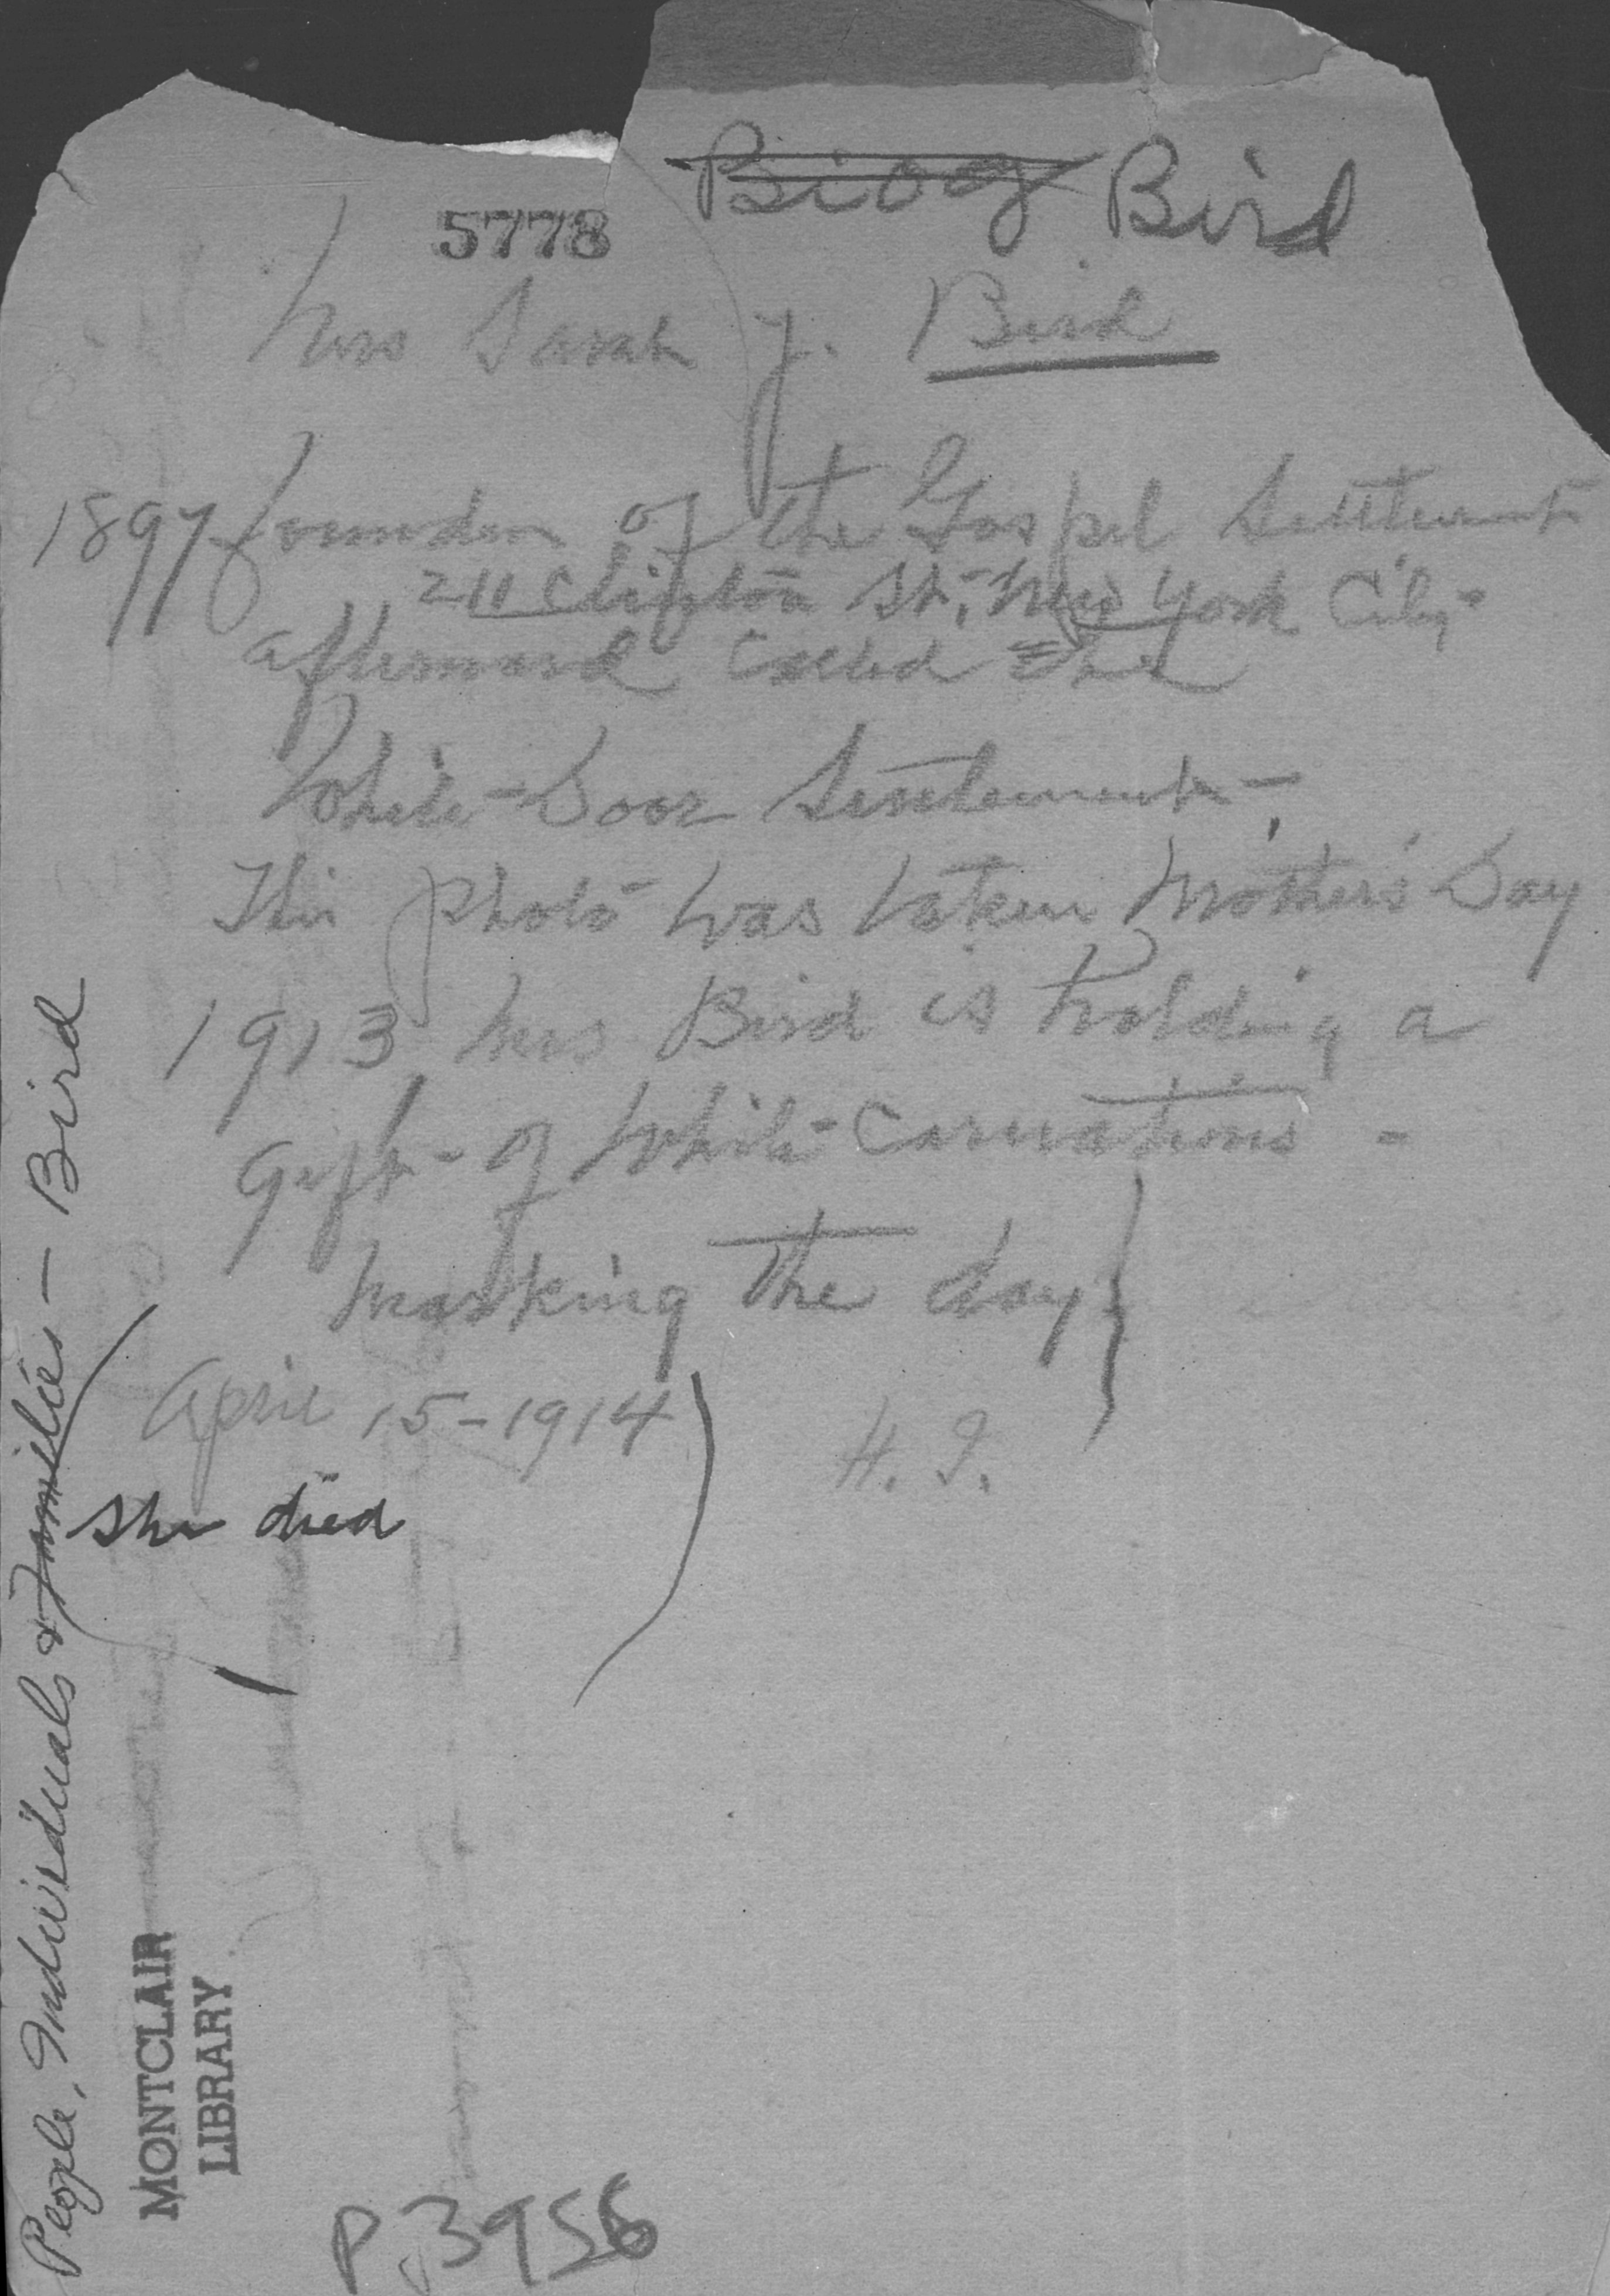 Biog Bird
5778
Mrs Sarah J. Bird
1897 founder of the Gospel Settlement
211 Clinton St, New York City
afterward called the
White-Door Settlement-
This photo was taken Mother's Day
1913, Mrs Bird is holding a
gift of white carnations -
marking the day
April 15-1914
H. I.
she died
People, Individuals & Families - Bird
MONTCLAIR
LIBRARY
P. 3956